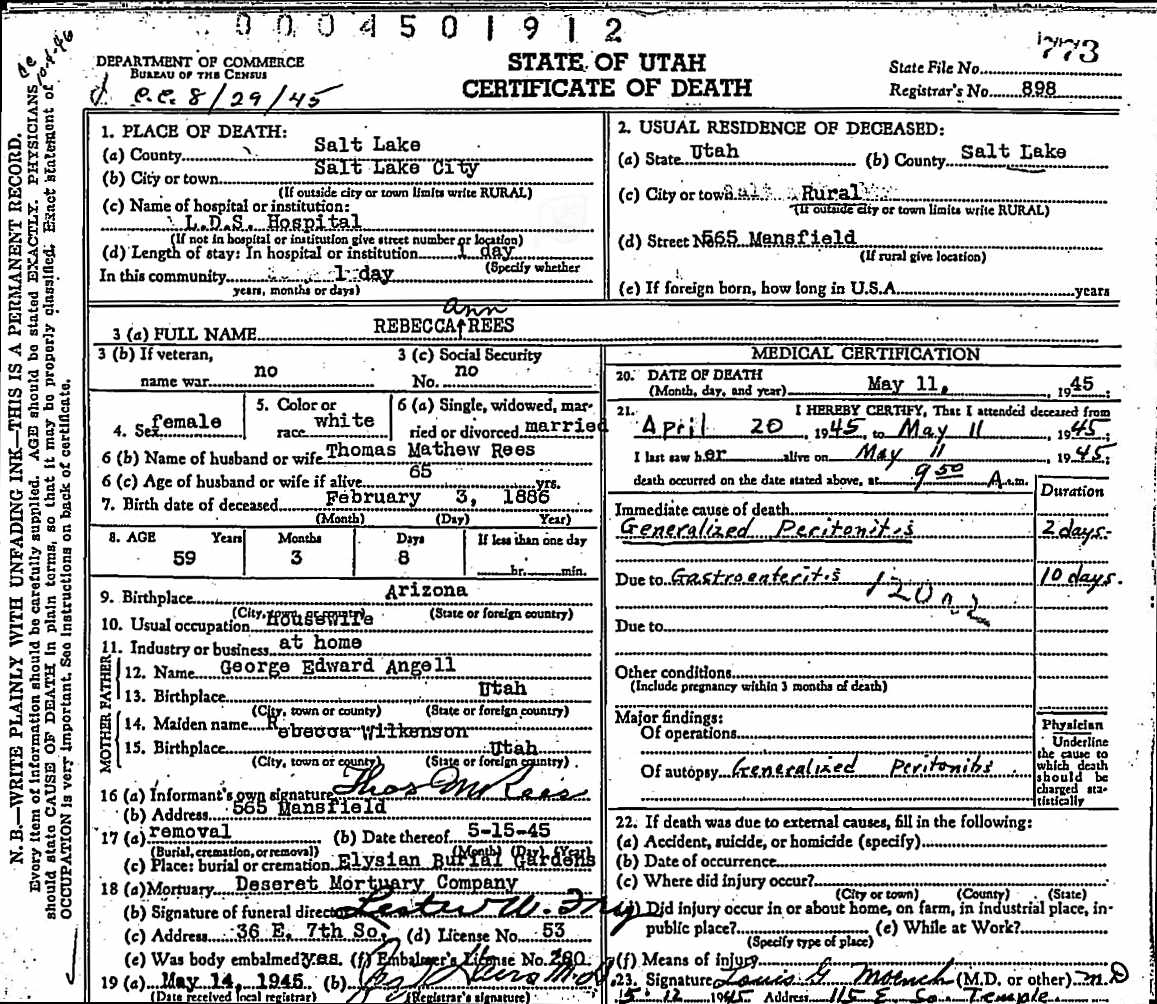 0004501912
773
DEPARTMENT OF COMMERCE
BUREAU OF THE CENSUS
P.C. 8/29/45
STATE OF UTAH
CERTIFICATE OF DEATH
State File No.
Registrar's No. 898
N. B.—WRITE PLAINLY WITH UNFADING INK—THIS IS A PERMANENT RECORD.
Every item of information should be carefully supplied. AGE should be stated EXACTLY. PHYSICIANS
should state CAUSE OF DEATH in plain terms, so that it may be properly classified. Exact statement of
OCCUPATION is very important. See instructions on back of certificate.
1. PLACE OF DEATH:
(a) County Salt Lake
(b) City or town Salt Lake City
(If outside city or town limits write RURAL)
(c) Name of hospital or institution:
L.D.S. Hospital
(If not in hospital or institution give street number or location)
(d) Length of stay: In hospital or institution 1 day
(Specify whether
In this community 1 day
years, months or days)
2. USUAL RESIDENCE OF DECEASED:
(a) State Utah (b) County Salt Lake
(c) City or town Rural
(If outside city or town limits write RURAL)
(d) Street No 565 Mansfield
(If rural give location)
(e) If foreign born, how long in U.S.A. years
3 (a) FULL NAME REBECCA Ann REES
3 (b) If veteran, name war no
3 (c) Social Security No. no
4. Sex female
5. Color or race white
6 (a) Single, widowed, married or divorced married
6 (b) Name of husband or wife Thomas Mathew Rees
6 (c) Age of husband or wife if alive 65 yrs.
7. Birth date of deceased February 3, 1886
(Month) (Day) Year)
8. AGE Years Months Days If less than one day
59 3 8 hr. min.
9. Birthplace Arizona
(City, town, or county) (State or foreign country)
10. Usual occupation Housewife
11. Industry or business at home
FATHER
12. Name George Edward Angell
13. Birthplace Utah
(City, town or county) (State or foreign country)
MOTHER
14. Maiden name Rebecca Wilkenson
15. Birthplace Utah
(City, town or county) (State or foreign country)
16 (a) Informant's own signature Thos M Rees
(b) Address 565 Mansfield
17 (a) removal (b) Date thereof 5-15-45
(Burial, cremation, or removal) (Month) (Day) (Year)
(c) Place: burial or cremation Elysian Burial Gardens
18 (a) Mortuary Deseret Mortuary Company
(b) Signature of funeral director Lester W.
(c) Address 36 E. 7th So. (d) License No. 53
(e) Was body embalmed yes. (f) Embalmer's License No. 280
19 (a) May 14, 1945 (b)
(Date received local registrar) (Registrar's signature)
MEDICAL CERTIFICATION
20. DATE OF DEATH
(Month, day, and year) May 11, 1945
21. I HEREBY CERTIFY, That I attended deceased from
April 20, 1945, to May 11, 1945;
I last saw her alive on May 11, 1945;
death occurred on the date stated above, at 9 50 A.m.
Duration
Immediate cause of death
Generalized Peritonitis 2 days-
Due to Gastroenteritis 10 days.
Due to
Other conditions
(Include pregnancy within 3 months of death)
Major findings:
Of operations
Of autopsy Generalized Peritonitis
Physician
Underline
the cause to
which death
should be
charged sta-
tistically
22. If death was due to external causes, fill in the following:
(a) Accident, suicide, or homicide (specify)
(b) Date of occurrence
(c) Where did injury occur?
(City or town) (County) (State)
(d) Did injury occur in or about home, on farm, in industrial place, in-
public place? (e) While at Work?
(Specify type of place)
(f) Means of injury
23. Signature Louis G. Moench (M.D. or other) M.D
5 12 1945 Address 115 E. So. Temple